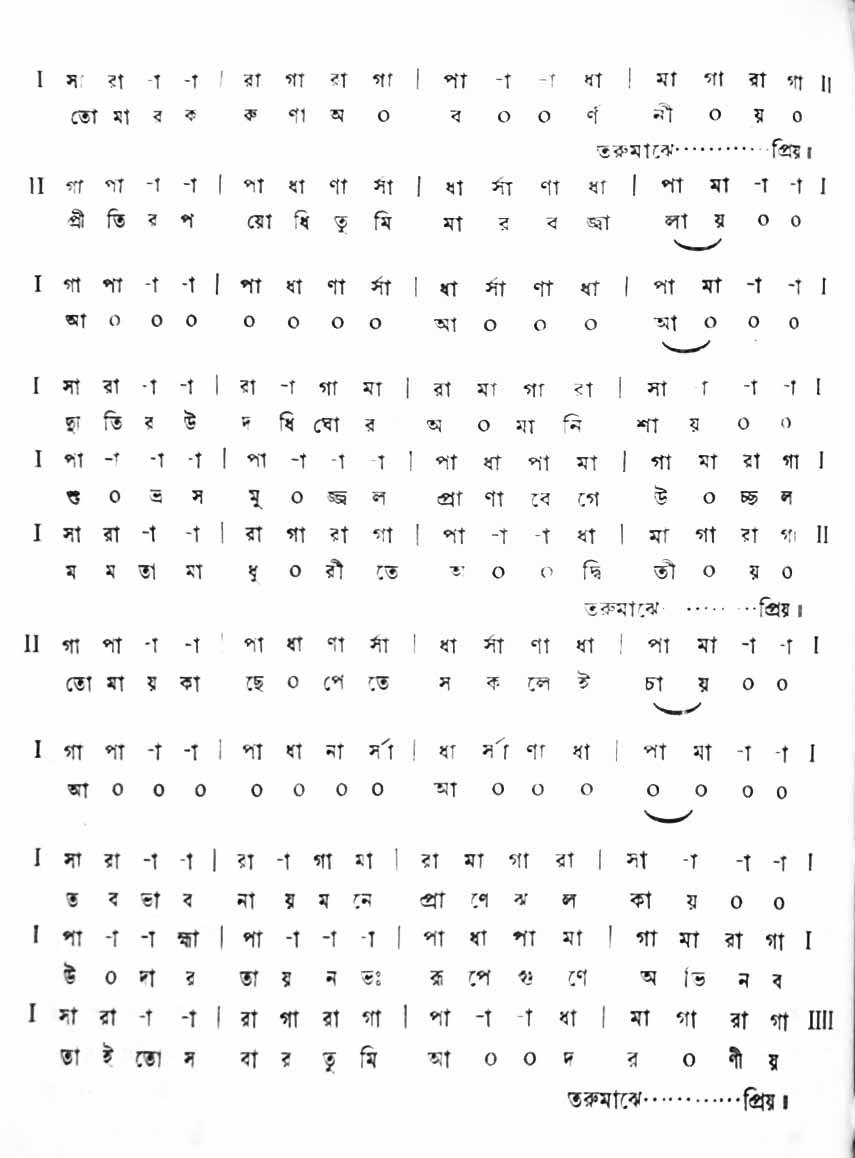 I সা রা -া -া | রা গা রা গা | পা -া -া ধা | মা গা রা গা II
তো মা র ক ক ণা অ ০ ব ০ ০ র্ণ নী ০ য় ০
তরুমাঝে············প্রিয়॥
II গা পা -া -া | পা ধা ণা র্সা | ধা র্সা ণা ধা | পা মা -া -া I
প্রী তি র প য়ো ধি তু মি মা র ব জ্বা লা য় ০ ০
I গা পা -া -া | পা ধা ণা র্সা | ধা র্সা ণা ধা | পা মা -া -া I
আ ০ ০ ০ ০ ০ ০ ০ আ ০ ০ ০ আ ০ ০ ০
I সা রা -া -া | রা -া গা মা | রা মা গা রা | সা -া -া -া I
দ্যু তি র উ দ ধি ঘো র অ ০ মা নি শা য় ০ ০
I পা -া -া -া | পা -া -া -া | পা ধা পা মা | গা মা রা গা I
শু ০ ভ্র স মু ০ জ্জ্ব ল প্রা ণা বে গে উ ০ চ্ছ ল
I সা রা -া -া | রা গা রা গা | পা -া -া ধা | মা গা রা গা II
ম ম তা মা ধু ০ রী তে অ ০ ০ দ্বি তী ০ য় ০
তরুমাঝে ·········প্রিয়॥
II গা পা -া -া | পা ধা ণা র্সা | ধা র্সা ণা ধা | পা মা -া -া I
তো মা য় কা ছে ০ পে তে স ক লে ই চা য় ০ ০
I গা পা -া -া | পা ধা না র্সা | ধা র্সা ণা ধা | পা মা -া -া I
আ ০ ০ ০ ০ ০ ০ ০ আ ০ ০ ০ ০ ০ ০ ০
I সা রা -া -া | রা -া গা মা | রা মা গা রা | সা -া -া -া I
ত ব ভা ব না য় ম নে প্রা ণে ঝ ল কা য় ০ ০
I পা -া -া হ্মা | পা -া -া -া | পা ধা পা মা | গা মা রা গা I
উ ০ দা র তা য় ন ভঃ রূ পে গু ণে অ ভি ন ব
I সা রা -া -া | রা গা রা গা | পা -া -া ধা | মা গা রা গা IIII
তা ই তো স বা র তু মি আ ০ ০ দ র ০ ণী য়
তরুমাঝে············প্রিয়॥